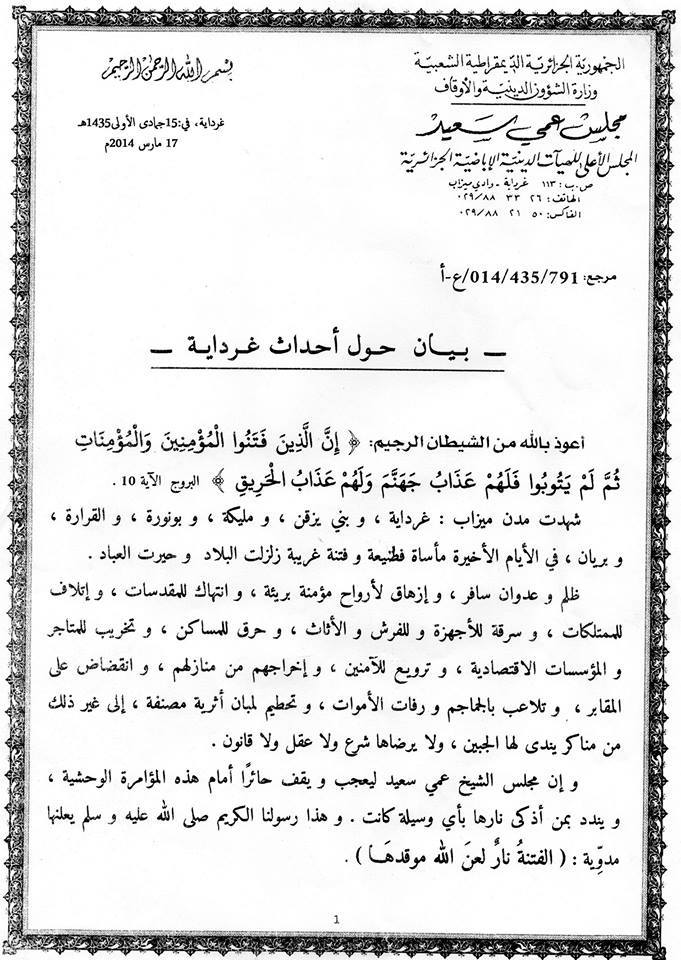 الجمهورية الجزائرية الديمقراطية الشعبية
وزارة الشؤون الدينية والأوقاف
مجلس عمي سعيد
المجلس الأعلى للهيآت الدينية الإباضية الجزائرية
ص.ب: ١١٣ غرداية - وادي ميزاب
الهاتف: ٢٦ ٣٣ ٠٢٩/٨٨
الفاكس: ٥٠ ٢١ ٠٢٩/٨٨
بسم الله الرحمن الرحيم
غرداية، في: 15 جمادى الأولى 1435هـ
17 مارس 2014م
مرجع: 014/435/791/ع-أ
_ بيـان حول أحداث غرداية _
أعوذ بالله من الشيطان الرجيم: ﴿ إِنَّ الَّذِينَ فَتَنُوا الْمُؤْمِنِينَ وَالْمُؤْمِنَاتِ
ثُمَّ لَمْ يَتُوبُوا فَلَهُمْ عَذَابُ جَهَنَّمَ وَلَهُمْ عَذَابُ الْحَرِيقِ ﴾ البروج الآية 10 .
شهدت مدن ميزاب : غرداية ، و بني يزقن ، و مليكة ، و بونورة ، و القرارة ،
و بريان ، في الأيام الأخيرة مأساة فظيعة و فتنة غريبة زلزلت البلاد و حيرت العباد .
ظلم و عدوان سافر ، و إزهاق لأرواح مؤمنة بريئة ، و انتهاك للمقدسات ، و إتلاف
للممتلكات ، و سرقة للأجهزة و للفرش و الأثاث ، و حرق للمساكن ، و تخريب للمتاجر
و المؤسسات الاقتصادية ، و ترويع للآمنين ، و إخراجهم من منازلهم ، و انقضاض على
المقابر ، و تلاعب بالجماجم و رفات الأموات ، و تحطيم لمبان أثرية مصنفة ، إلى غير ذلك
من مناكر يندى لها الجبين ، ولا يرضاها شرع ولا عقل ولا قانون .
و إن مجلس الشيخ عمي سعيد ليعجب و يقف حائرًا أمام هذه المؤامرة الوحشية ،
و يندد بمن أذكى نارها بأي وسيلة كانت . و هذا رسولنا الكريم صلى الله عليه و سلم يعلنها
مدوِّية : ( الفتنةُ نارٌ لعنَ الله موقدهَا ) .
1